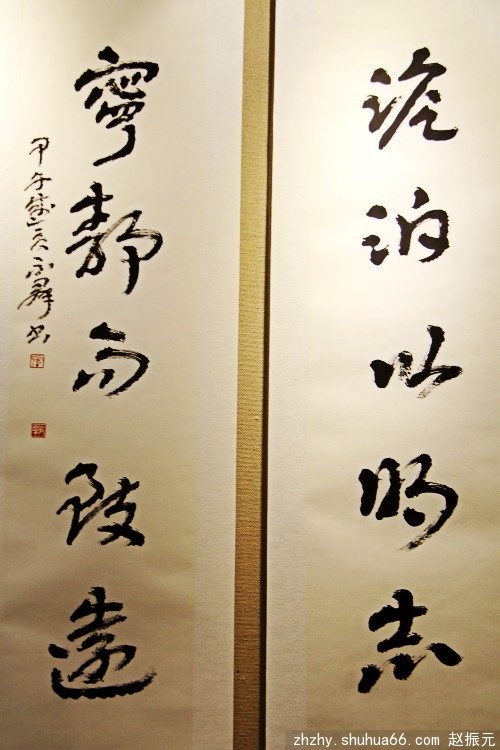 澹泊以明志
寧靜而致遠
甲午盛夏
zhzhy.shuhua66.com 赵振元